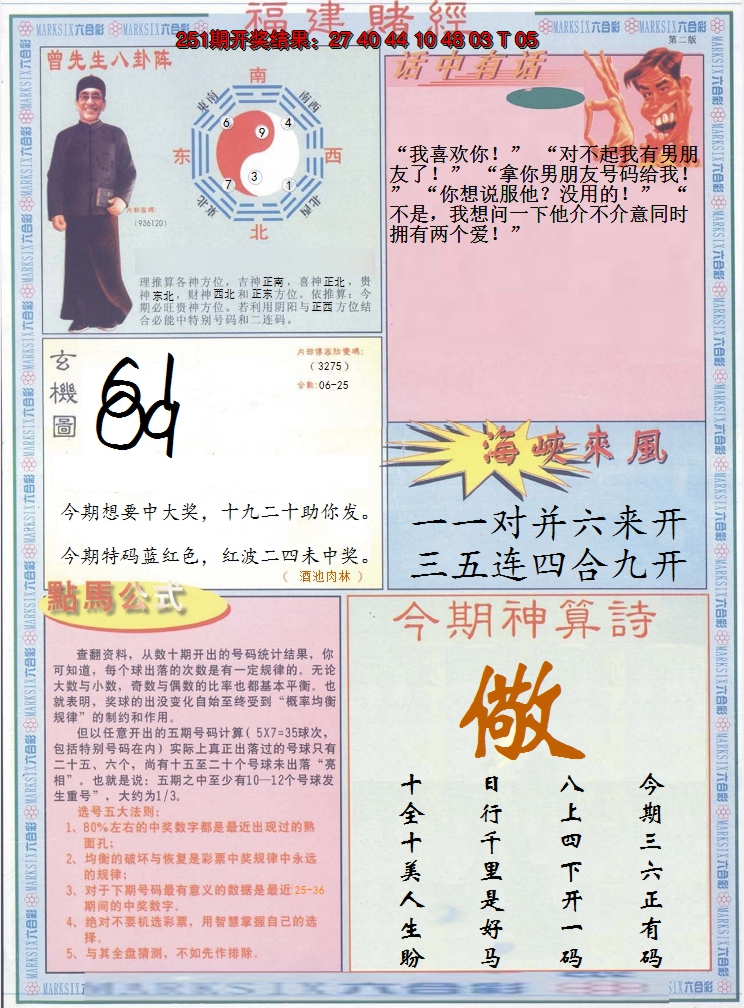 福建賭經
251期开奖结果：27 40 44 10 48 03 T 05
第二版
MARKSIX六合彩
曾先生八卦阵
南
东南
南西
6
9
4
东
西
7
3
1
東北
北西
北
内部密碼:
(936120)
理推算各神方位，吉神正南，喜神正北，贵
神东北，财神西北和正东方位。依推算：今
期必旺贵神方位。若利用阴阳与正西方位结
合必能中特别号码和二连码。
话中有话
“我喜欢你！” “对不起我有男朋
友了！” “拿你男朋友号码给我！
” “你想说服他？没用的！” “
不是，我想问一下他介不介意同时
拥有两个爱！”
玄機圖
(3275)
合数:06-25
今期想要中大奖，十九二十助你发。
今期特码蓝红色，红波二四未中奖。
（ 酒池肉林 ）
海峽來風
一一对并六来开
三五连四合九开
點馬公式
查翻资料，从数十期开出的号码统计结果，你
可知道，每个球出落的次数是有一定规律的。无论
大数与小数，奇数与偶数的比率也都基本平衡。也
就表明，奖球的出没变化自始至终受到“概率均衡
规律”的制约和作用。
但以任意开出的五期号码计算( 5X7=35球次，
包括特别号码在内) 实际上真正出落过的号球只有
二十五、六个，尚有十五至二十个号球未出落“亮
相”。也就是说：五期之中至少有10—12个号球发
生重号”，大约为1/3。
选号五大法则：
1、80%左右的中奖数字都是最近出现过的熟
面孔；
2、均衡的破坏与恢复是彩票中奖规律中永远
的规律；
3、对于下期号码最有意义的数据是最近25-36
期间的中奖数字。
4、绝对不要机选彩票，用智慧掌握自己的选
择。
5、与其全盘猜测，不如先作排除。
今期神算詩
儆
今期三六正有码
八上四下开一码
日行千里是好马
十全十美人生盼